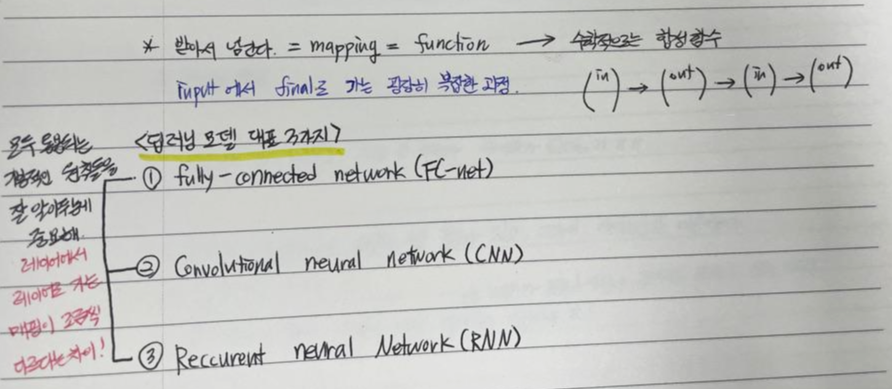 * 받아서 넘긴다. = mapping = function → 수학적으로는 합성함수
input에서 final로 가는 굉장히 복잡한 과정.
(in) → (out) → (in) → (out)
<딥러닝 모델 대표 3가지>
① fully-connected network (FC-net)
② Convolutional neural network (CNN)
③ Reccurent neural Network (RNN)
모두 통용되는
개념적인 원칙들을
잘 알아두는게
중요해.
레이어에서
레이어로 가는
매핑이 조금씩
다르다는 차이!